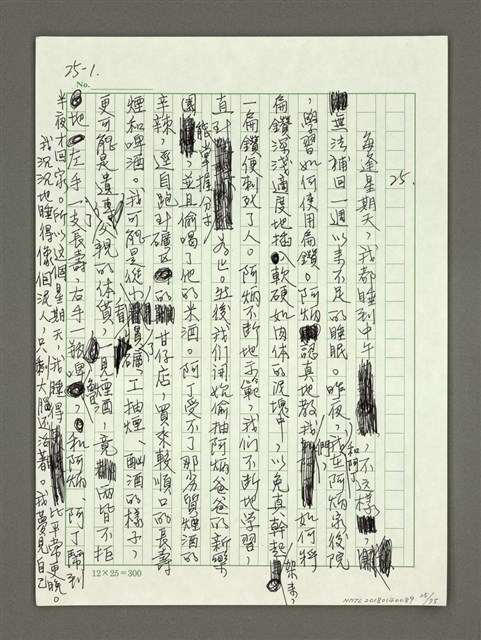 25-1.
No.
25.
每逢星期天，我都睡到中午，不这樣，
無法補回一週以來不足的睡眠。昨夜，我和阿丁在阿炳家後院
，學習如何使用扁鑽。阿炳認真地教我們，如何將
扁鑽深淺適度地插入軟硬如肉体的泥塊中，以免真幹起架來，
一扁鑽便刺死了人。阿炳不断地示範，我們不断地學習，
直到能掌握分寸為止。然後我們開始偷抽阿炳爸爸的新樂
園，並且偷喝了他的米酒。阿丁受不了那劣質煙酒的
辛辣，逕自跑到礦区的甘仔店，買來較順口的長壽
煙和啤酒。我可能是從小看礦工抽煙、酗酒的樣子，
更可能是遺傳了父親的体質，一見煙酒，竟兩皆不拒
地左手一支長壽，右手一瓶啤，和阿炳、阿丁鬧到
半夜才回家。所以這個星期天，我睡得比平常更晚。
我沉沉地睡得像個泥人，只剩大腦还活着。我夢見自己
12×25=300
NMTL20180140089 25/75